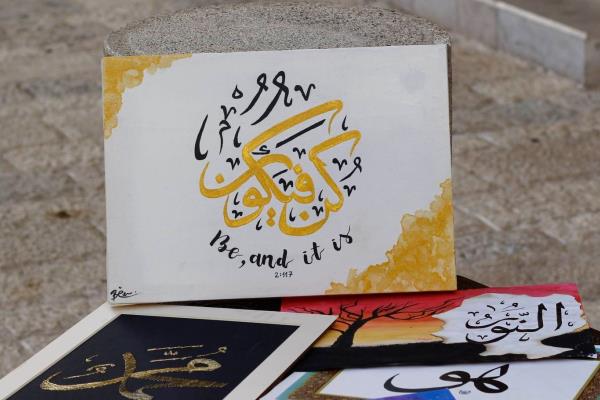 كن فيكون
Be, and it is
2:117
النُّور
محمد
هو